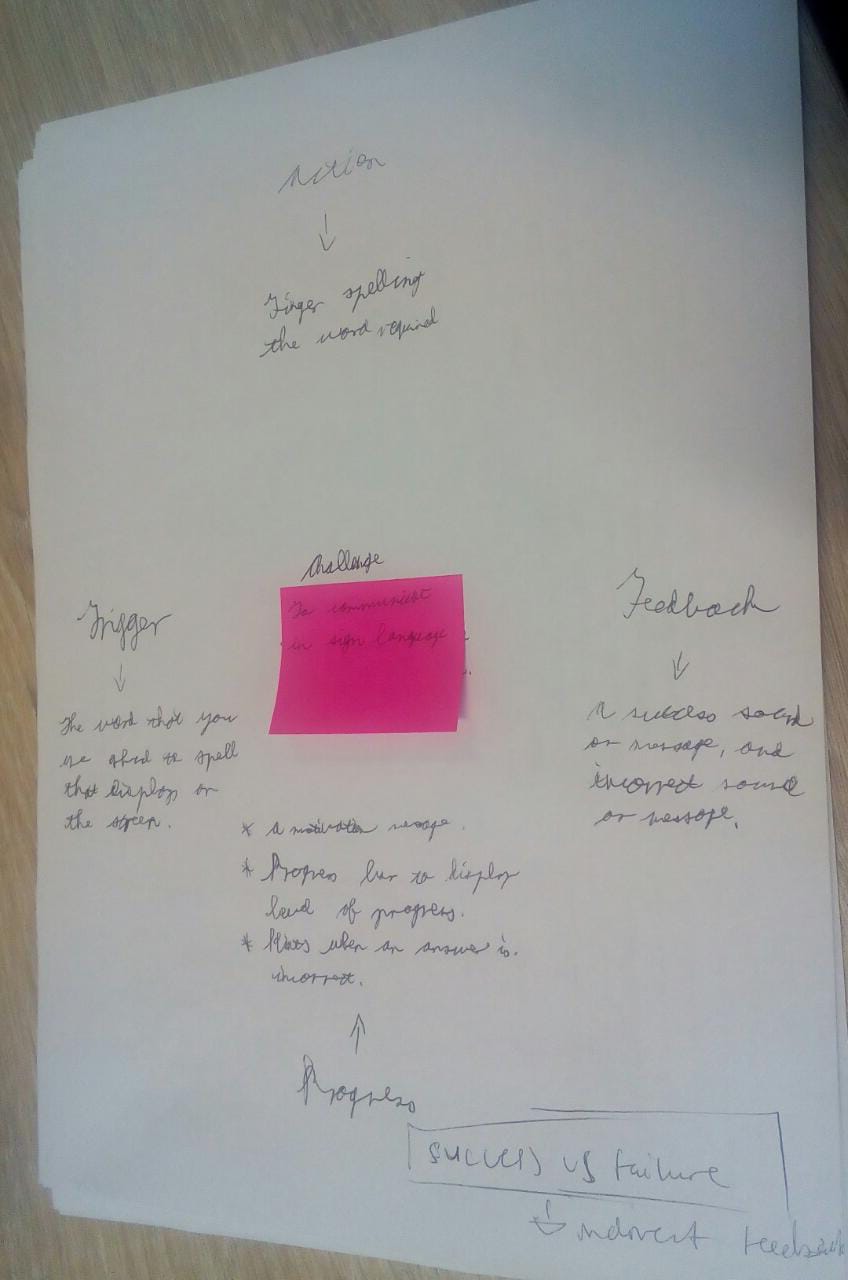 Action
↓
Finger spelling
the word required
Challenge
To communicate
in sign language
Trigger
↓
The word that you
are asked to spell
that displays on
the screen.
Feedback
↓
A success sound
or message, and
incorrect sound
or message.
* A motivation message.
* Progress bar to display
level of progress.
* Hints when an answer is.
incorrect.
↑
Progress
success vs failure
↓ indirect feedback